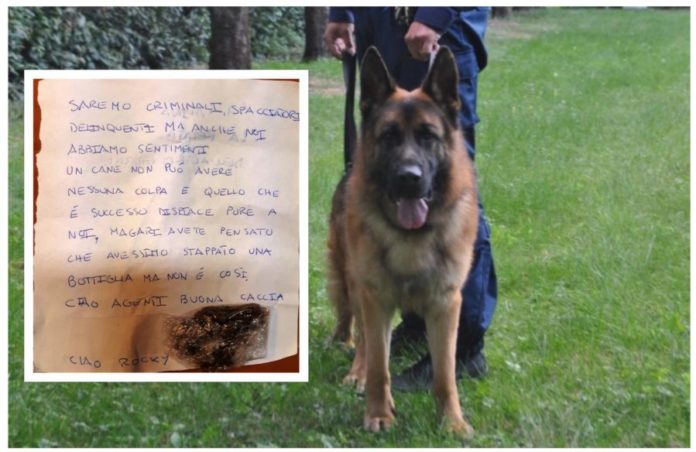 SAREMO CRIMINALI, SPACCIATORI
DELINQUENTI MA ANCHE NOI
ABBIAMO SENTIMENTI
UN CANE NON PUÓ AVERE
NESSUNA COLPA E QUELLO CHE
É SUCCESSO DISPIACE PURE A
NOI, MAGARI AVETE PENSATO
CHE AVESSIMO STAPPATO UNA
BOTTIGLIA MA NON É COSÍ,
CIAO AGENTI BUONA CACCIA
CIAO ROCKY